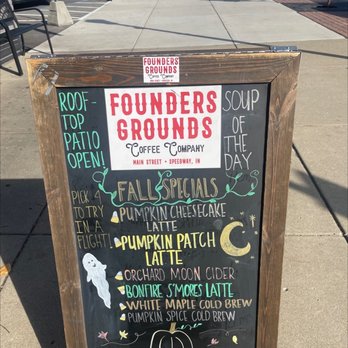 FOUNDERS
GROUNDS
COFFEE COMPANY
ROOF-
TOP
PATIO
OPEN!
FOUNDERS
GROUNDS
COFFEE COMPANY
MAIN STREET • SPEEDWAY, IN
SOUP
OF THE
DAY
FALL SPECIALS
PICK 4
TO TRY
IN A
FLIGHT!
PUMPKIN CHEESECAKE
LATTE
PUMPKIN PATCH
LATTE
ORCHARD MOON CIDER
BONFIRE S'MORES LATTE
WHITE MAPLE COLD BREW
PUMPKIN SPICE COLD BREW